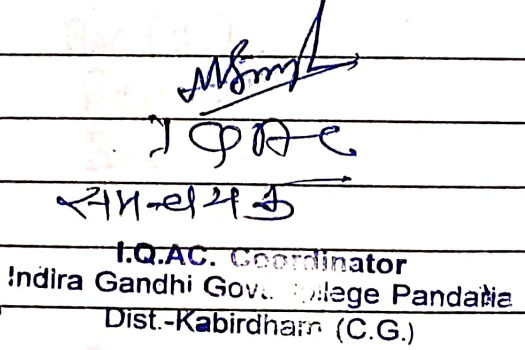 IQAC
समन्वयक
I.Q.AC. Coordinator
Indira Gandhi Govt. College Pandaria
Dist.-Kabirdham (C.G.)